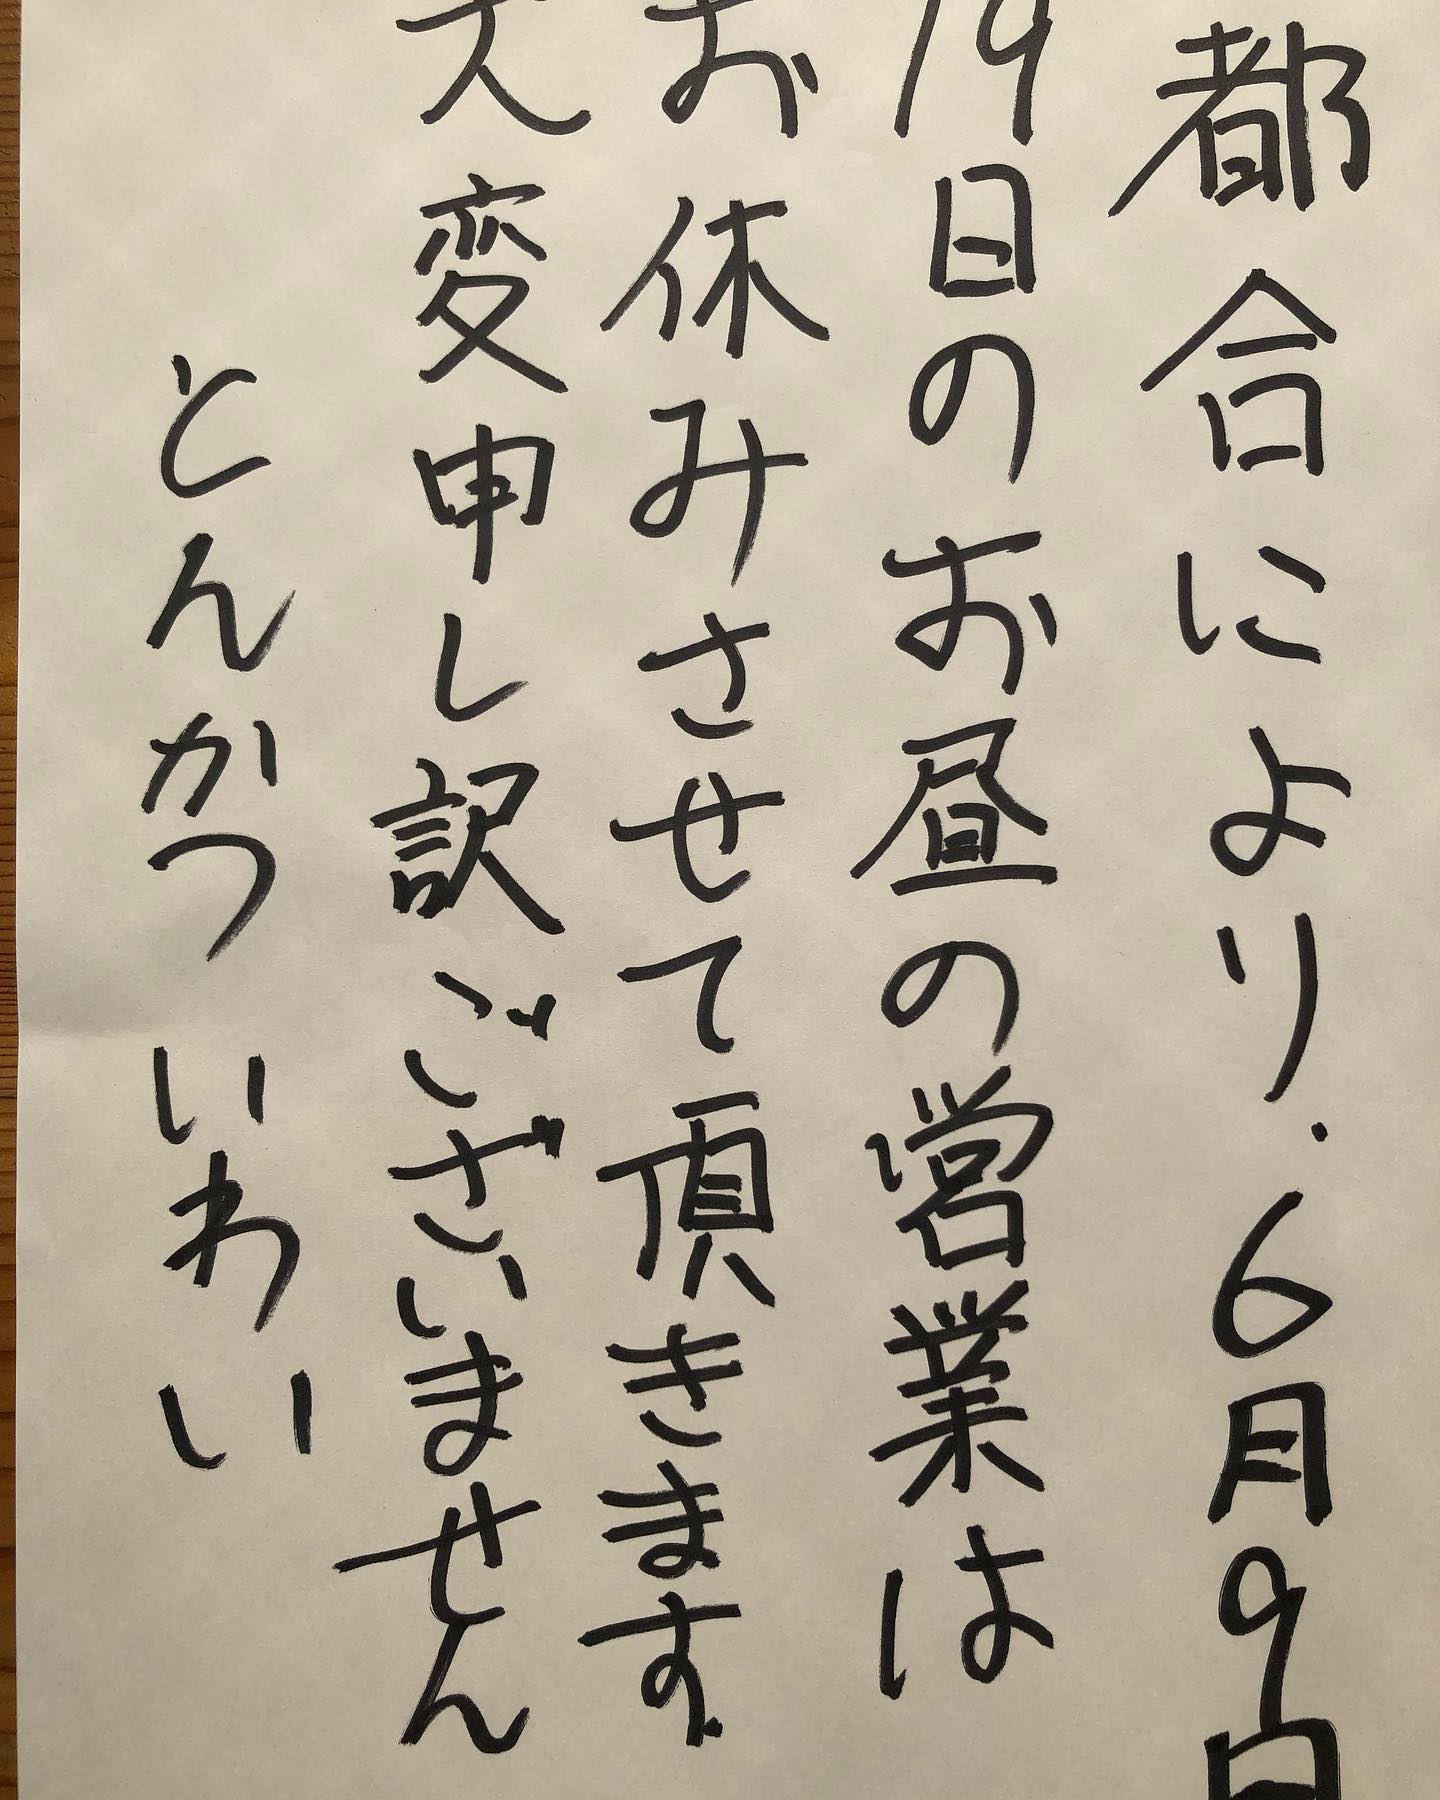 都合により.6月9日
19日のお昼の営業は
お休みさせて頂きます
大変申し訳ございません
とんかつ いわい